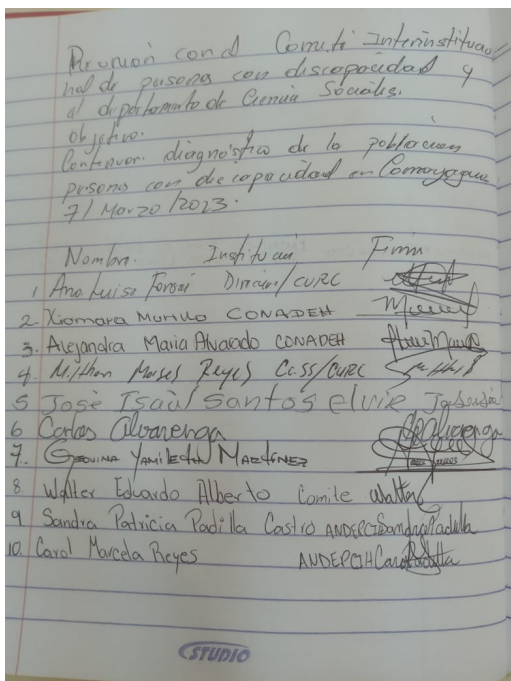 Reunión con el Comité Interinstitucio
nal de persona con discapacidad y
el departamento de Ciencia Sociales.
objetivo.
Continuar diagnóstico de la poblacion
persona con discapacidad en Comayagua
7/Marzo/2023.
Nombre. Institución Firma
1. Ana Luisa Dirección/CURC
2. Xiomara Murillo CONADEH
3. Alejandra Maria Alvarado CONADEH
4. Milthon Moises Reyes CC.SS/CURC
5 José Isaül Santos elvir
6 Carlos Alvarenga
7. Geovina Yamileth Martínez
8. Walter Eduardo Alberto Comite Walter
9 Sandra Patricia Padilla Castro ANDEPCIH Sandra Padilla
10. Carol Marcela Reyes ANDEPCIH Carol
STUDIO